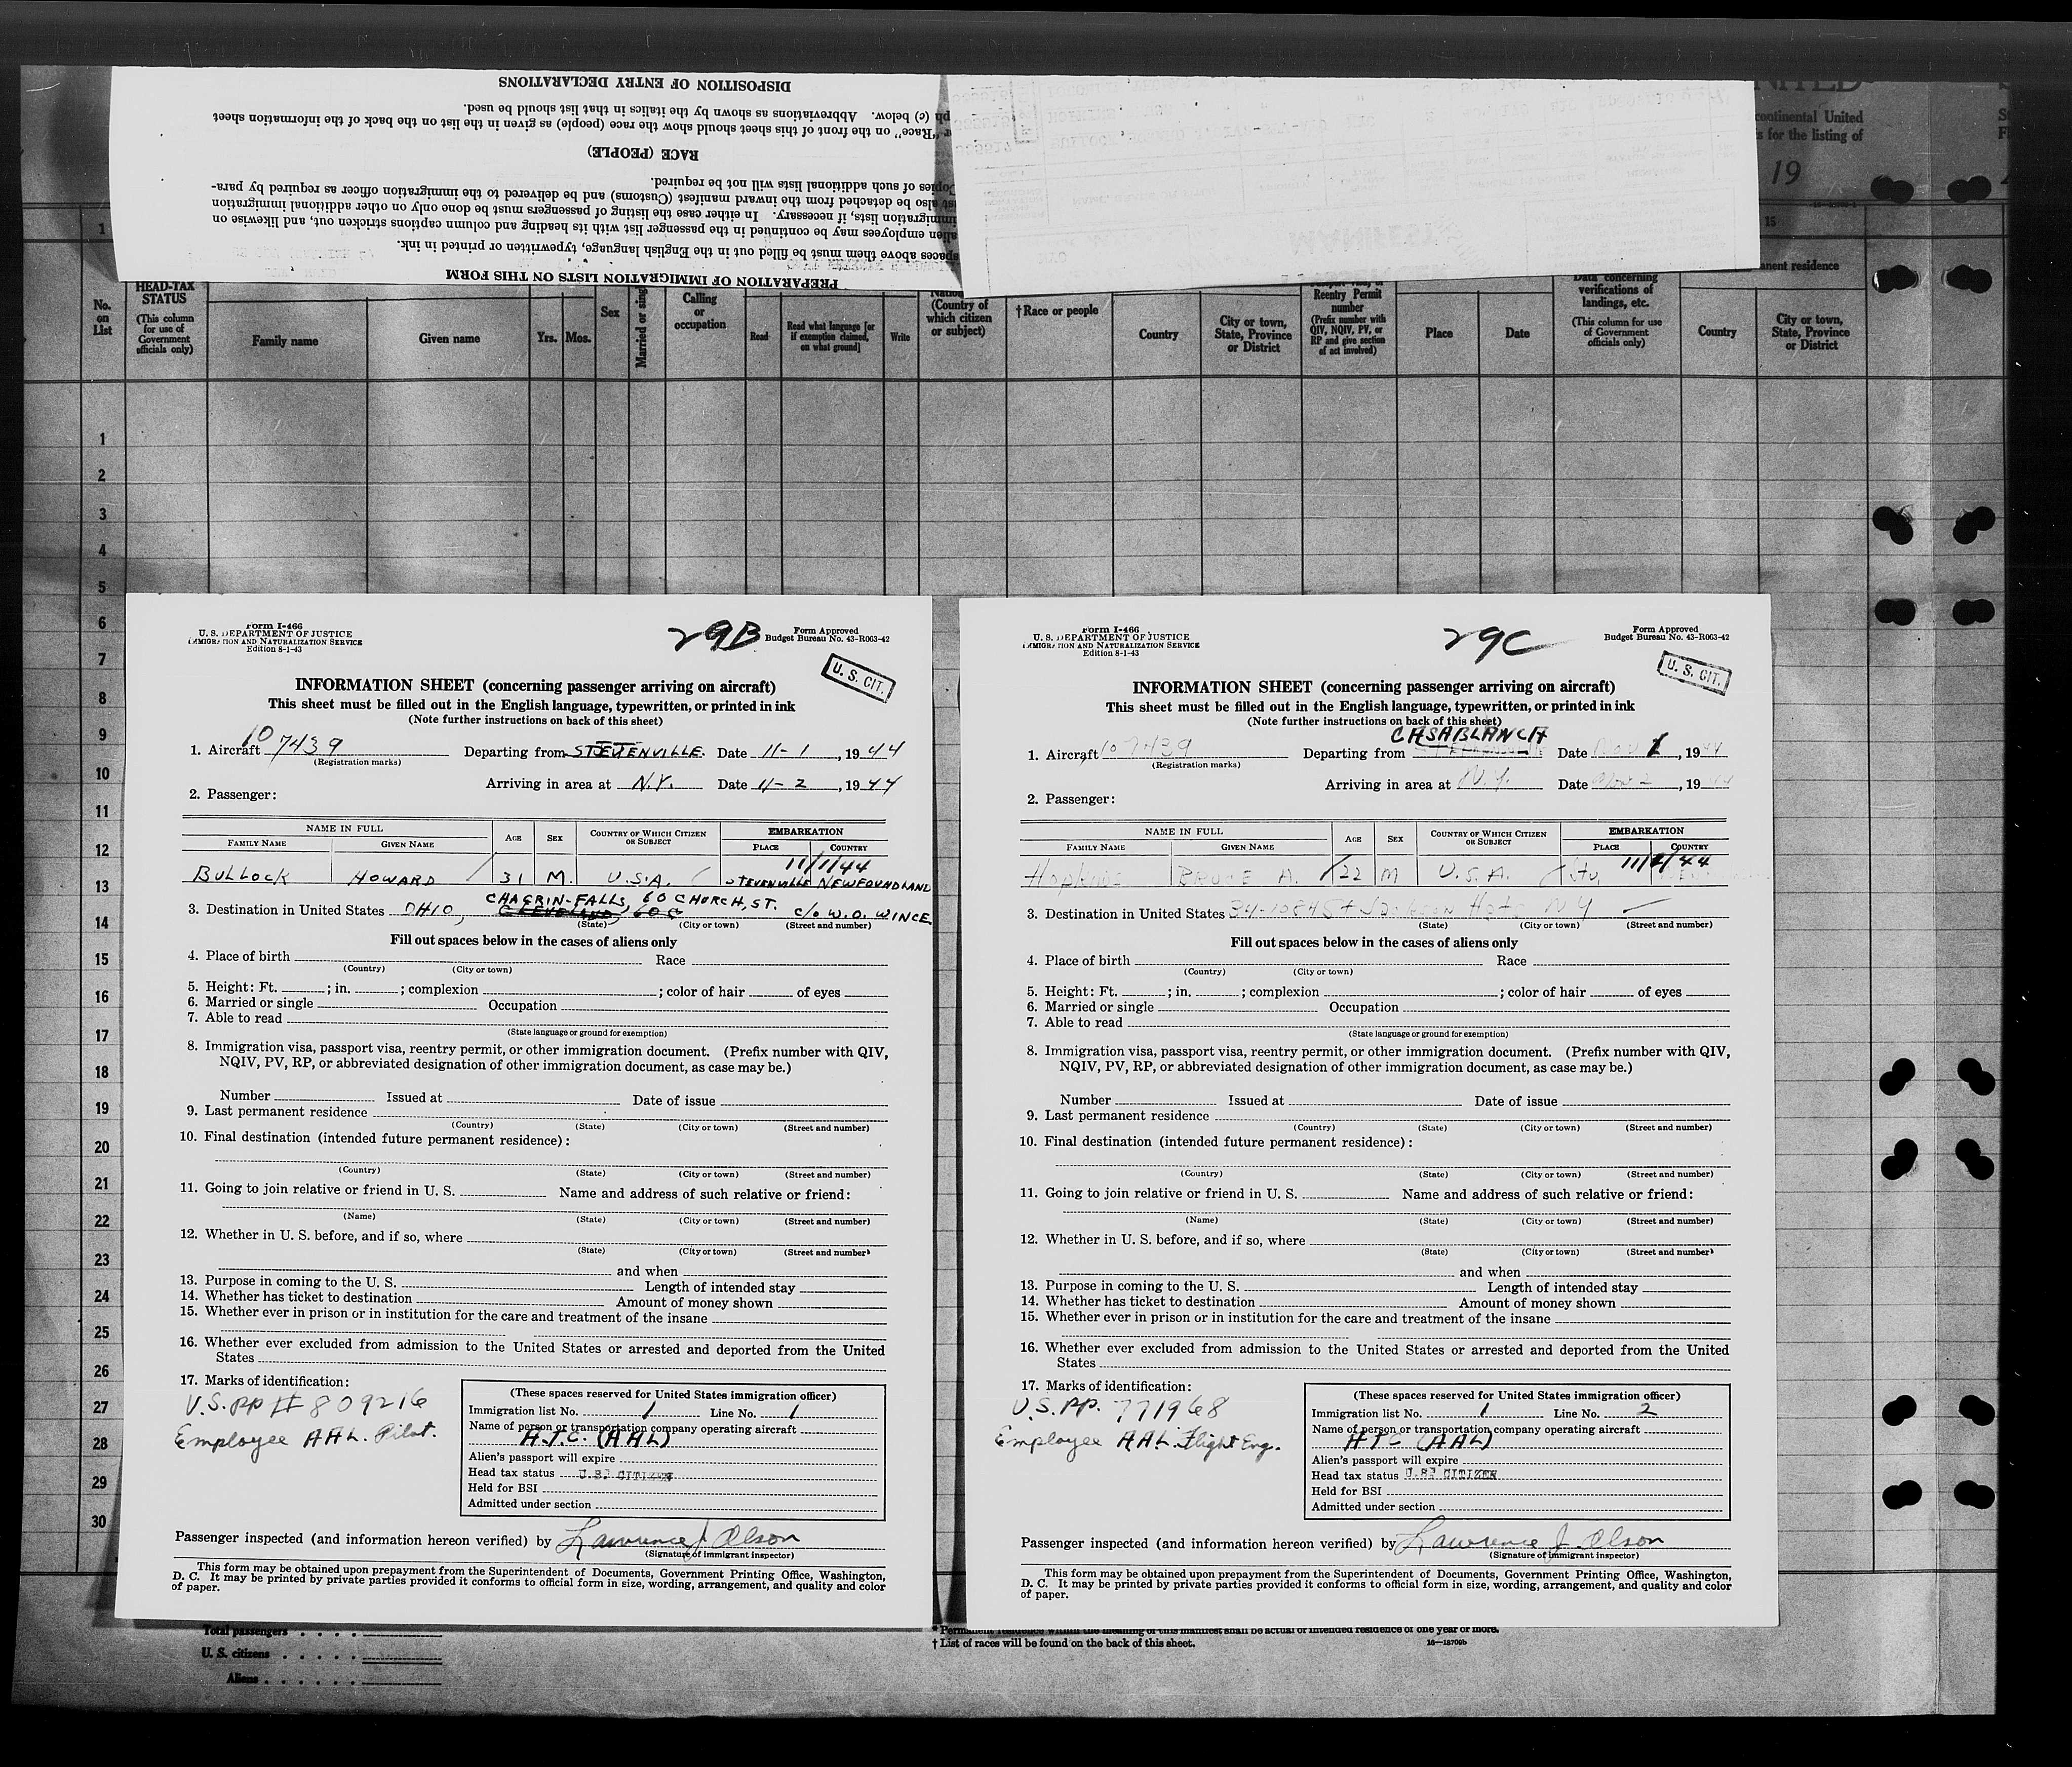 DISPOSITION OF ENTRY DECLARATIONS
ph (c) below. Abbreviations as shown by the italics in that list should be used.
"Race" on the front of this sheet should show the race (people) as given in the list on the back of the information sheet
RACE (PEOPLE)
Copies of such additional lists will not be required.
also be detached from the inward manifest (Customs) and be delivered to the immigration officer as required by para-
immigration lists, if necessary. In either case the listing of passengers must be done only on other additional immigration
alien employees may be continued in the passenger list with its heading and column captions stricken out, and likewise on
spaces above them must be filled out in the English language, typewritten or printed in ink.
PREPARATION OF IMMIGRATION LISTS ON THIS FORM
continental United
s for the listing of
19
1
15
No. on List
HEAD-TAX STATUS
(This column for use of Government officials only)
Family name
Given name
Yrs.
Mos.
Sex
Married or sing
Calling or occupation
Read
Read what language [or if exemption claimed, on what ground]
Write
(Country of which citizen or subject)
†Race or people
Country
City or town, State, Province or District
Reentry Permit number
(Prefix number with QIV, NQIV, PV, or RP and give section of act involved)
Place
Date
Data concerning verifications of landings, etc.
(This column for use of Government officials only)
nent residence
Country
City or town, State, Province or District
1
2
3
4
5
6
7
8
9
10
11
12
13
14
15
16
17
18
19
20
21
22
23
24
25
26
27
28
29
30
Form I-466
U. S. DEPARTMENT OF JUSTICE
IMMIGRATION AND NATURALIZATION SERVICE
Edition 8-1-43
29B
Form Approved
Budget Bureau No. 43-R063-42
U. S. CIT.
INFORMATION SHEET (concerning passenger arriving on aircraft)
This sheet must be filled out in the English language, typewritten, or printed in ink
(Note further instructions on back of this sheet)
1. Aircraft 107439 Departing from STEVENVILLE. Date 11-1, 1944
(Registration marks)
Arriving in area at N.Y. Date 11-2, 1944
2. Passenger:
NAME IN FULL AGE SEX COUNTRY OF WHICH CITIZEN OR SUBJECT EMBARKATION
FAMILY NAME GIVEN NAME PLACE COUNTRY
11/1/44
BULLOCK HOWARD 31 M. U.S.A. STEVENVILLE NEWFOUNDLAND
CHAGRIN-FALLS, 60 CHURCH, ST.
3. Destination in United States OHIO, CLEVELAND, 60 C c/o W.O. WINCE
(State) (City or town) (Street and number)
Fill out spaces below in the cases of aliens only
4. Place of birth Race
(Country) (City or town)
5. Height: Ft. ; in. ; complexion ; color of hair of eyes
6. Married or single Occupation
7. Able to read
(State language or ground for exemption)
8. Immigration visa, passport visa, reentry permit, or other immigration document. (Prefix number with QIV,
NQIV, PV, RP, or abbreviated designation of other immigration document, as case may be.)
Number Issued at Date of issue
9. Last permanent residence
(Country) (State) (City or town) (Street and number)
10. Final destination (intended future permanent residence):
(Country) (State) (City or town) (Street and number)
11. Going to join relative or friend in U. S. Name and address of such relative or friend:
(Name) (State) (City or town) (Street and number)
12. Whether in U. S. before, and if so, where
(State) (City or town) (Street and number)
and when
13. Purpose in coming to the U. S. Length of intended stay
14. Whether has ticket to destination Amount of money shown
15. Whether ever in prison or in institution for the care and treatment of the insane
16. Whether ever excluded from admission to the United States or arrested and deported from the United
States
17. Marks of identification:
U.S. PP # 809216
Employee AAL. Pilot.
(These spaces reserved for United States immigration officer)
Immigration list No. 1 Line No. 1
Name of person or transportation company operating aircraft
A.T.C. (AAL)
Alien's passport will expire
Head tax status U.S. CITIZEN
Held for BSI
Admitted under section
Passenger inspected (and information hereon verified) by Lawrence J. Olson
(Signature of immigrant inspector)
This form may be obtained upon prepayment from the Superintendent of Documents, Government Printing Office, Washington,
D. C. It may be printed by private parties provided it conforms to official form in size, wording, arrangement, and quality and color
of paper.
Form I-466
U. S. DEPARTMENT OF JUSTICE
IMMIGRATION AND NATURALIZATION SERVICE
Edition 8-1-43
29C
Form Approved
Budget Bureau No. 43-R063-42
U. S. CIT.
INFORMATION SHEET (concerning passenger arriving on aircraft)
This sheet must be filled out in the English language, typewritten, or printed in ink
(Note further instructions on back of this sheet)
CASABLANCA
1. Aircraft 107439 Departing from Date Nov 1, 1944
(Registration marks)
Arriving in area at N.Y. Date Nov 2, 1944
2. Passenger:
NAME IN FULL AGE SEX COUNTRY OF WHICH CITIZEN OR SUBJECT EMBARKATION
FAMILY NAME GIVEN NAME PLACE COUNTRY
11/1/44
Hopkins BRUCE A. 22 M U.S.A. Stv.
3. Destination in United States 34-10 84 St Jackson Hgts NY
(State) (City or town) (Street and number)
Fill out spaces below in the cases of aliens only
4. Place of birth Race
(Country) (City or town)
5. Height: Ft. ; in. ; complexion ; color of hair of eyes
6. Married or single Occupation
7. Able to read
(State language or ground for exemption)
8. Immigration visa, passport visa, reentry permit, or other immigration document. (Prefix number with QIV,
NQIV, PV, RP, or abbreviated designation of other immigration document, as case may be.)
Number Issued at Date of issue
9. Last permanent residence
(Country) (State) (City or town) (Street and number)
10. Final destination (intended future permanent residence):
(Country) (State) (City or town) (Street and number)
11. Going to join relative or friend in U. S. Name and address of such relative or friend:
(Name) (State) (City or town) (Street and number)
12. Whether in U. S. before, and if so, where
(State) (City or town) (Street and number)
and when
13. Purpose in coming to the U. S. Length of intended stay
14. Whether has ticket to destination Amount of money shown
15. Whether ever in prison or in institution for the care and treatment of the insane
16. Whether ever excluded from admission to the United States or arrested and deported from the United
States
17. Marks of identification:
U.S. PP. 771968
Employee AAL. Flight Eng.
(These spaces reserved for United States immigration officer)
Immigration list No. 1 Line No. 2
Name of person or transportation company operating aircraft
ATC (AAL)
Alien's passport will expire
Head tax status U.S. CITIZEN
Held for BSI
Admitted under section
Passenger inspected (and information hereon verified) by Lawrence J. Olson
(Signature of immigrant inspector)
This form may be obtained upon prepayment from the Superintendent of Documents, Government Printing Office, Washington,
D. C. It may be printed by private parties provided it conforms to official form in size, wording, arrangement, and quality and color
of paper.
Total passengers
U. S. citizens
Aliens
* Permanent residence within the meaning of this manifest shall be actual or intended residence of one year or more.
† List of races will be found on the back of this sheet.
16—18709b